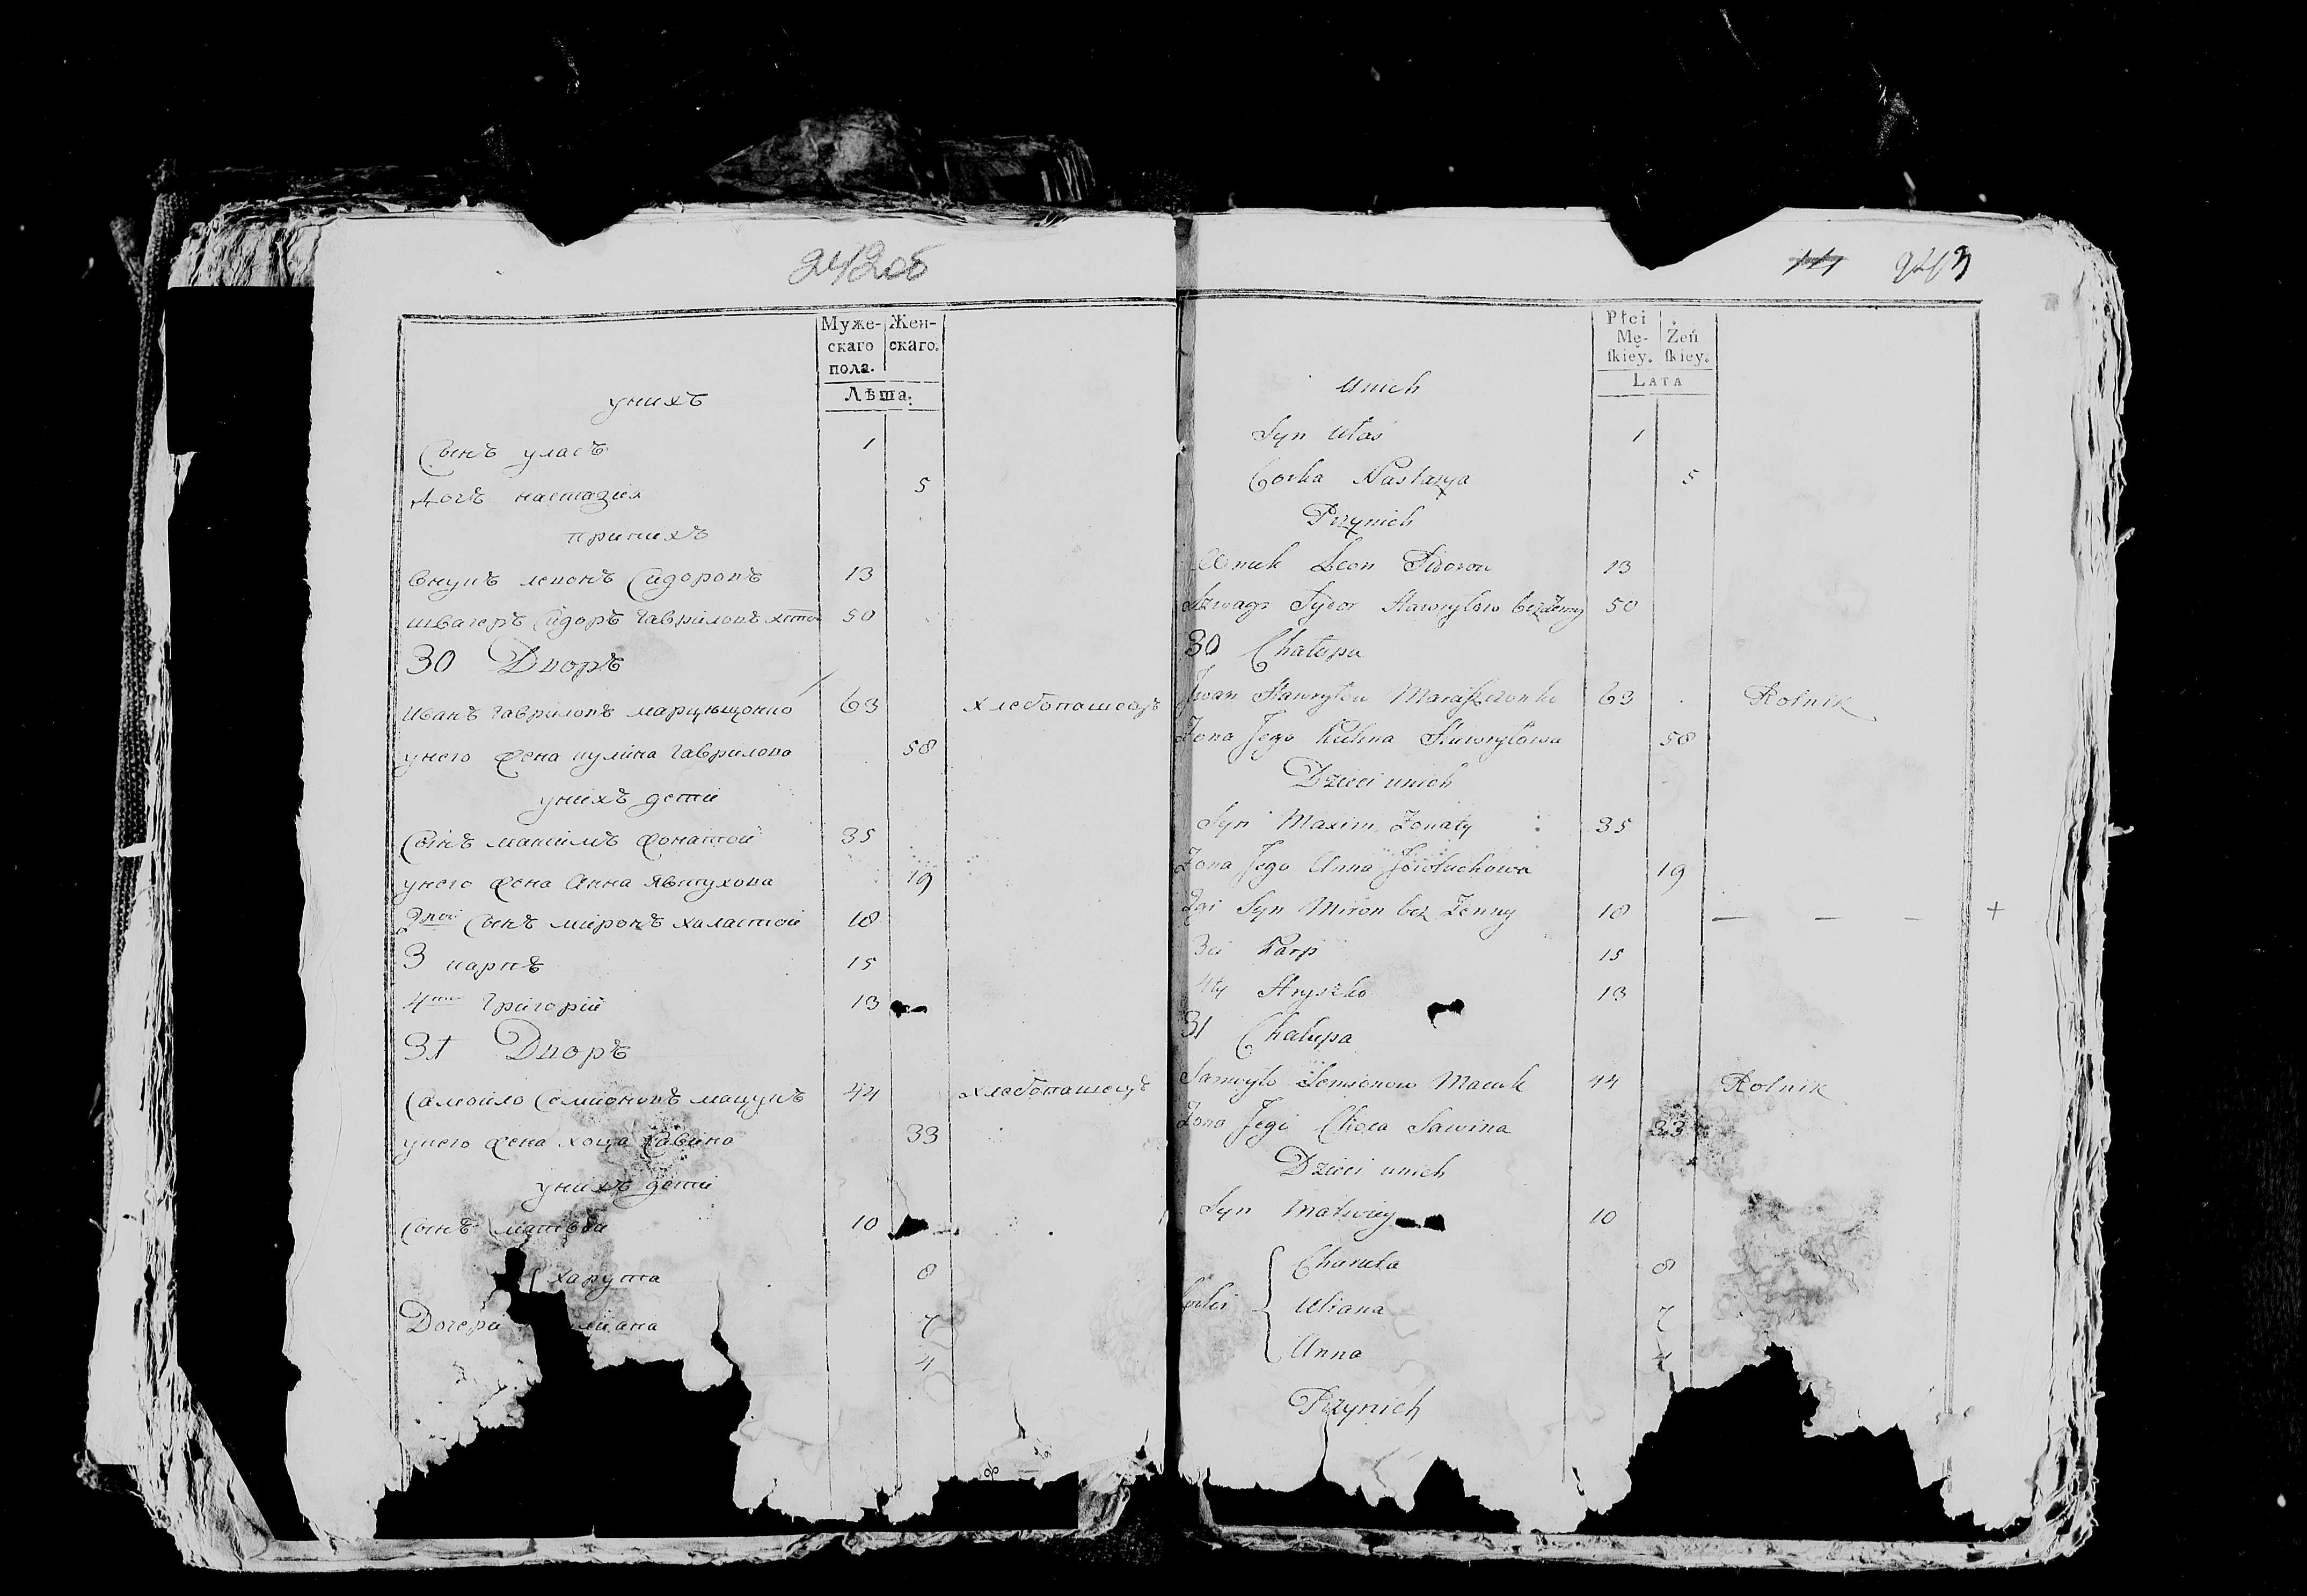 242об
Муже- Жен-
скаго скаго.
пола.
Лѣта.
унихъ
Сынъ уласъ 1
дочъ настазія 5
принихъ
Внукъ левонъ Сидоровъ 13
швагеръ Сидоръ Гавриловъ 50
30 Дворъ
Иванъ Гавриловъ 63 хлебопашецъ
унего жена кулина Гаврилова 58
унихъ дети
Сынъ максимъ жонатои 35
унего жена Анна Явтухова 19
2рои Сынъ миронъ халастои 18
3 карпъ 15
4тои Григории 13
31 Дворъ
Самойло Семионовъ мацукъ 44 хлебопашецъ
унего жена хоца савина 33
унихъ дети
сынъ матвеи 10
харута 8
Дочери 7
4
243
Płci
Mę- Żeń
skiey. skiey.
LATA
Unich
Syn Ułas 1
Corka Nastazya 5
Przynich
Wnuk Leon Sidorow 13
Szwagr Sydor Hawryłow bezżenny 50
30 Chałupa
Jwan Hawryłow 63 Rolnik
Zona Jego Kulina Hawryłowa 58
Dzieci unich
Syn Maxim Zonaty 35
Zona Jego Anna Jewtuchowa 19
2gi Syn Miron bez Zenny 18 +
3ci Karp 15
4ty Hryszko 13
31 Chałupa
Samoyło Semionow Macuk 44 Rolnik
Zona Jego Choca Sawina 33
Dzieci unich
Syn Matwiey 10
Charuta 8
Corki Uliana 7
Anna 4
Przynich